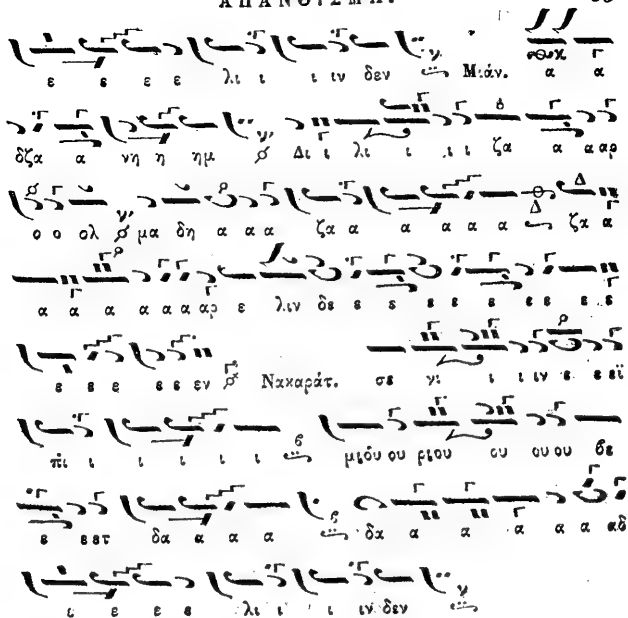 ΑΠΑΝΘΙΣΜΑ.
ε ε ε ε λι ι ι ιν δεν Μιάν. α α
δζα α νη η ημ Δι ι λι ι ι ι ζα α α αρ
ο ο ολ μα δη α α α ζα α α α α α α ζα α
α α α α α α αρ ε λιν δε ε ε ε ε ε ε ε ε
ε ε ε ε ε εν Νακαράτ. σε νι ι ι ιν ε ε εϊ
πι ι ι ι ι ι μιού ου ριου ου ου ου βε
ε ε ετ δα α α α δα α α α α α αδ
ι ε ε ε λι ι ι ιν δεν